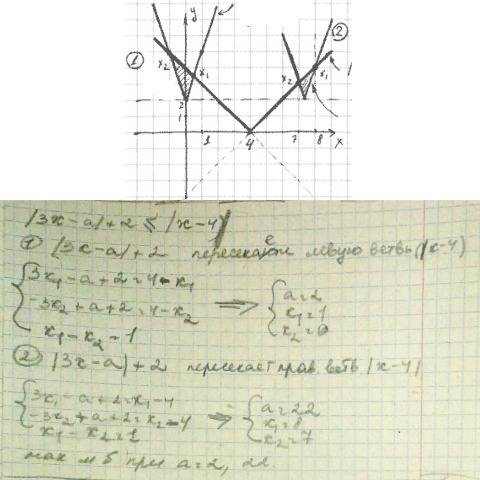 ① y ②
x₂ x₁ x₂ x₁
2
1
1 4 7 8 x
|3x-a|+2 ≤ |x-4|
① |3x-a|+2 пересекает левую ветвь |x-4|
3x₁-a+2=4-x₁
-3x₂+a+2=4-x₂ ⇒ a=2
x₁=1
x₁-x₂=1 x₂=0
② |3x-a|+2 пересекает прав. ветв |x-4|
3x₁-a+2=x₁-4
-3x₂+a+2=x₂-4 ⇒ a=22
x₁=8
x₁-x₂=1 x₂=7
при a=2, 22.